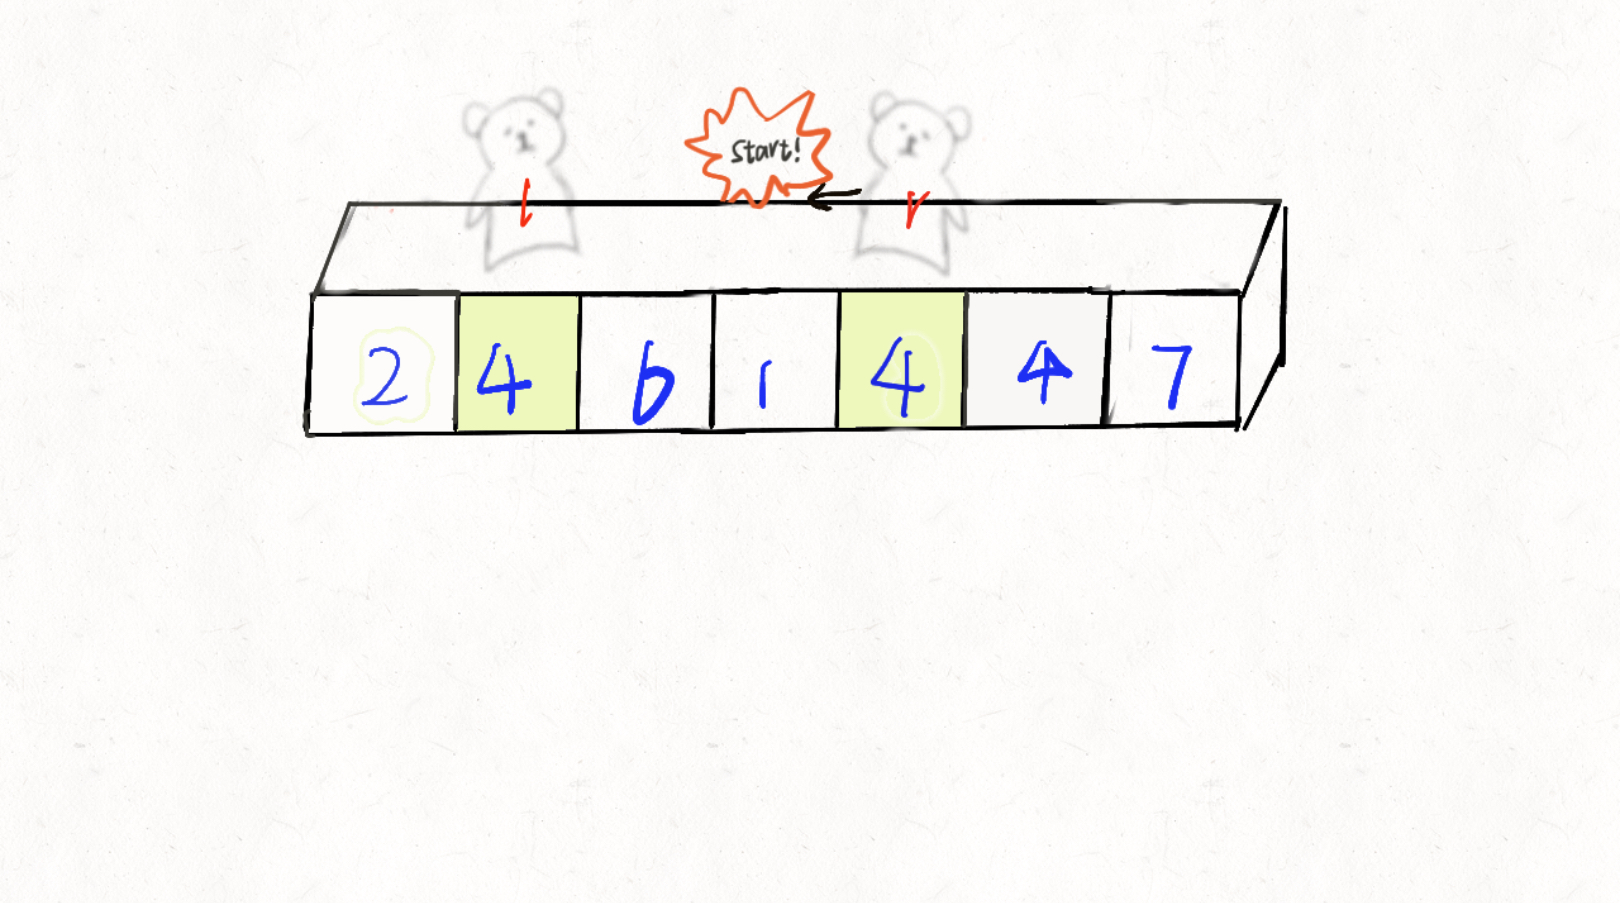 Start!
l r
2 4 6 1 4 4 7